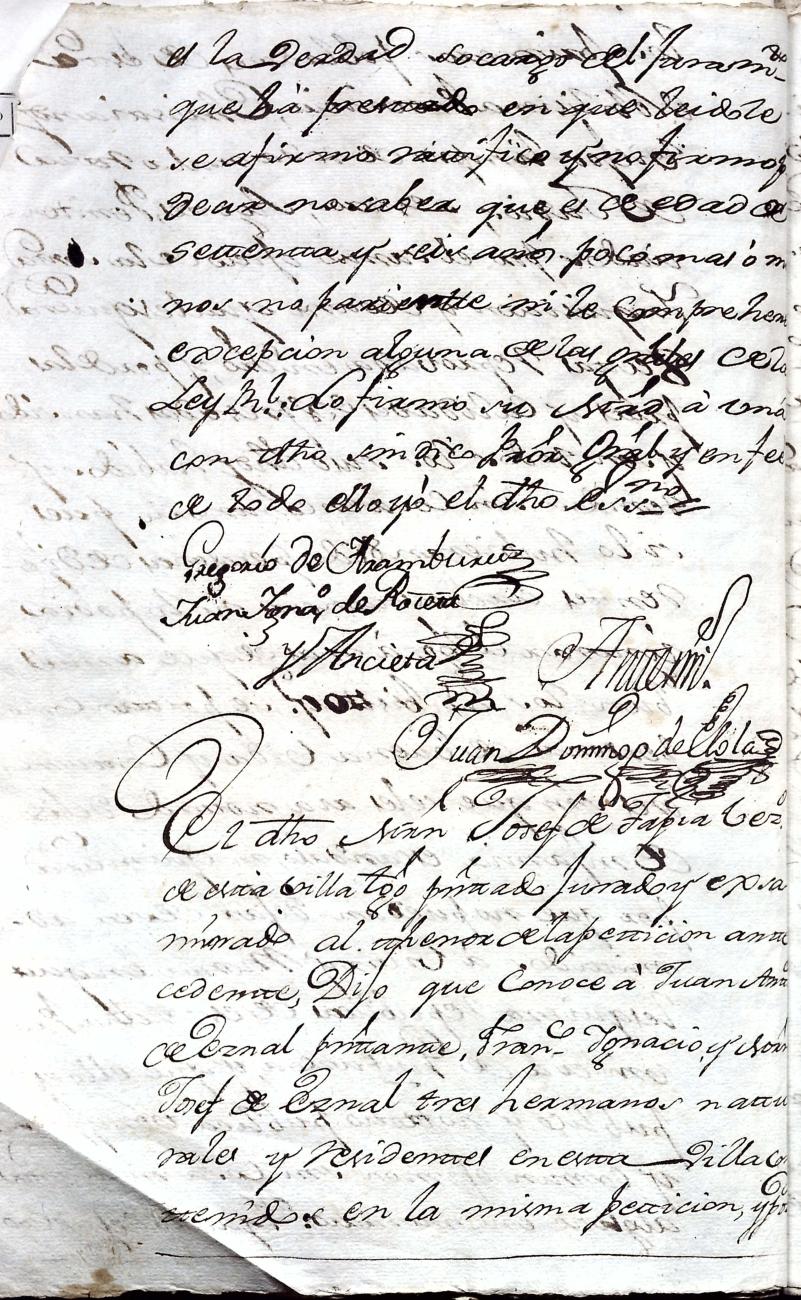 es la Verdad socargo del Juramto
que há prestado en que leidole
se afirmo ratifico y no firmo p
decir no saber que es de edad de
settentta y seis años poco mas ò me
nos no parientte ni le Comprehen
excepcion alguna de las grâles de la
Ley Rl. do firmo su Mrd à una
con dho sindico Prôr Grâl y en fee
de todo ello yó el dho Essno
Gregorio de Aramburu
Juan Ignao de Roteta
y Ancieta
Antemi.
Juan Domingo de
El dho Mrñ Josef de Tapia Vezo
de esta villa tgô prêttado Jurado y exsa
minado al tthenor de la petticion antte
cedentte, Dijo que Conoce à Juan Antto
de Eznal prêttantte, Franco Ignacio, y Mrñ
Josef de Eznal tres hermanos nattu
rales y residenttes en estta Villa Co
ttenidos en la misma petticion, y por